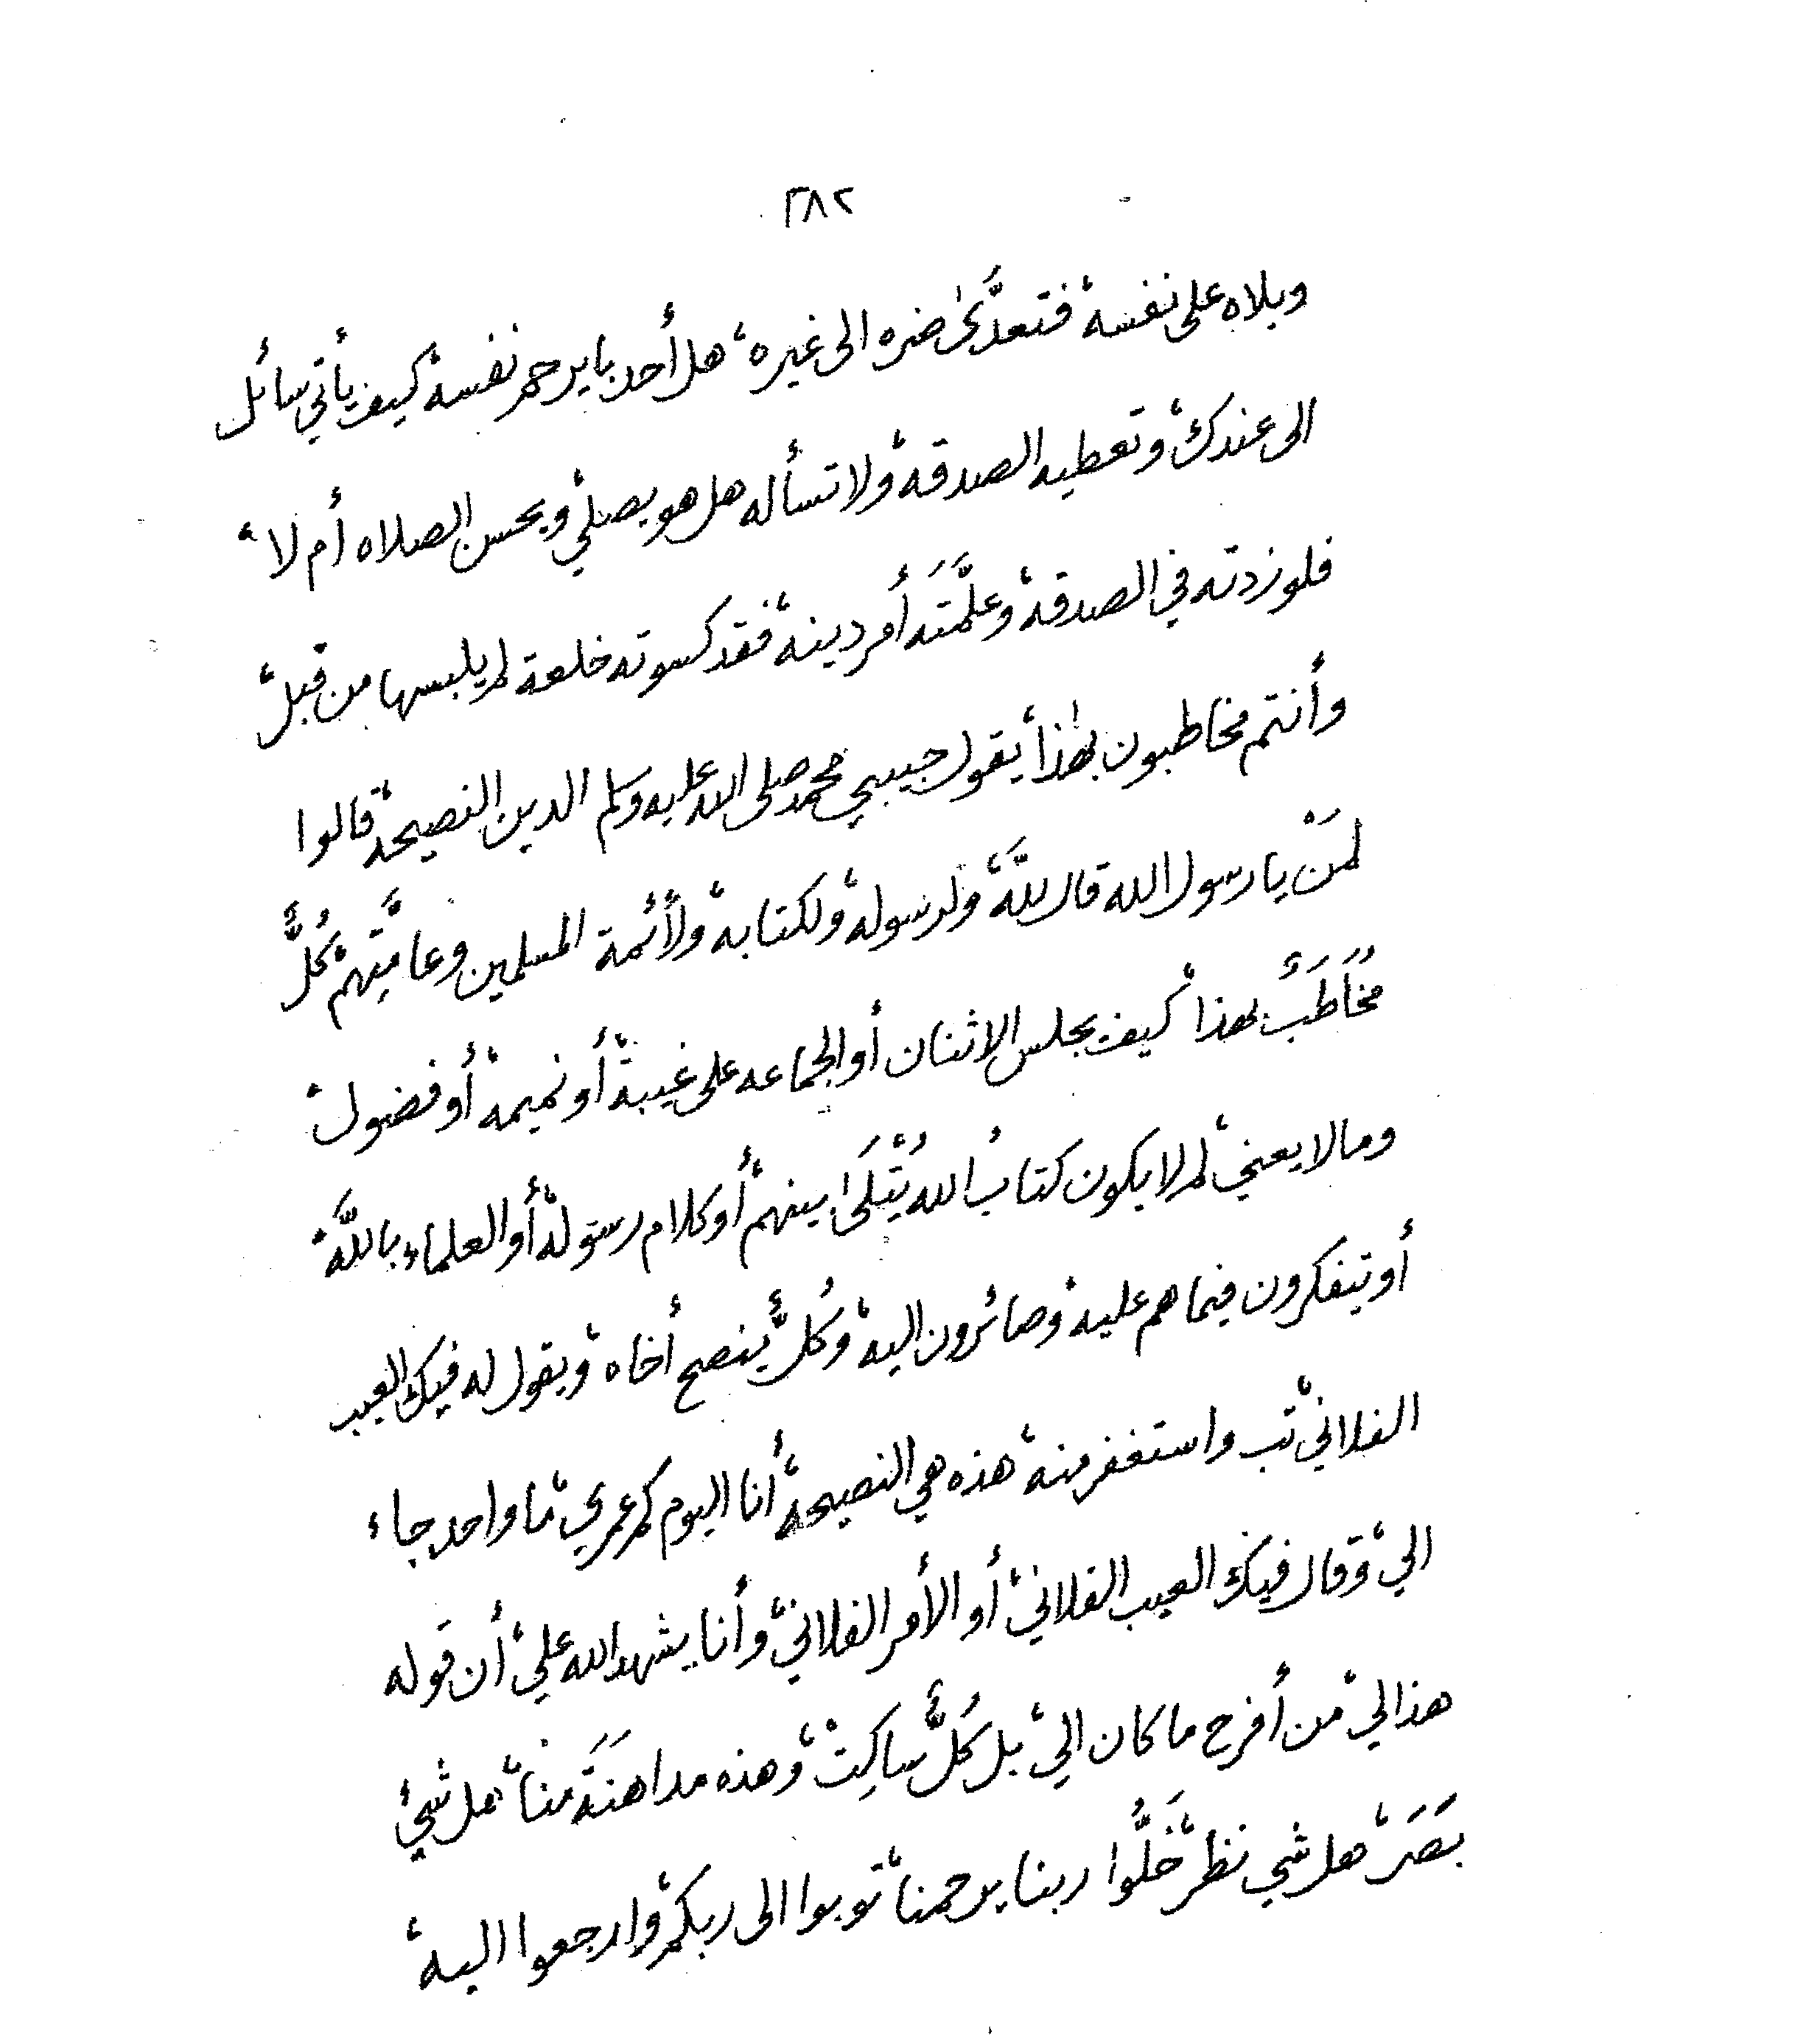 ٣٨٢
وبلاه على نفسه، فتعدَّى ضره الى غيره، هل أحد با يرحم نفسه، كيف يأتي سائل
الى عندك، وتعطيه الصدقه، ولا تسأله هل هو يصلي، ويحسن الصلاه أم لا،
فلو زدته في الصدقه، وعلَّمتَه أمر دينه، فقد كسوته خلعة لم يلبسها من قبل،
وأنتم مخاطبون بهذا، يقول حبيبي محمد صلى الله عليه وسلم الدين النصيحة، قالوا
لمَنْ يا رسول الله قال للَّه، ولرسوله، ولكتابه، ولأئمة المسلمين وعامَّتِهم، كُلٌّ
مخُاطَبٌ بهذا، كيف يجلس الاثنان أو الجماعه على غيبة، أو نميمه، أو فضول،
وما لا يعني، لم لا يكون كتابُ الله يُتْلَى بينهم، أو كلام رسوله، أو العلماء باللَّه،
أو يتفكرون فيما هم عليه، وصائرون اليه، وكُلٌّ ينصح أخاه، ويقول له فيك العيب
الفلاني، تب واستغفر منه، هذه هي النصيحة، أنا اليوم كم عمري، ما واحد جاء
الي، وقال فيك العيب الفلاني، أو الأمر الفلاني، وأنا يشهد الله علي، أن قوله
هذا لي، من أفرح ما كان الي، بل كُلٌّ ساكِتْ، وهذه مداهَنَة منا، هل شيء
بَصَر، هل شي نظر، خَلُّوا ربنا يرحمنا، توبوا الى ربكم، وارجعوا اليه،